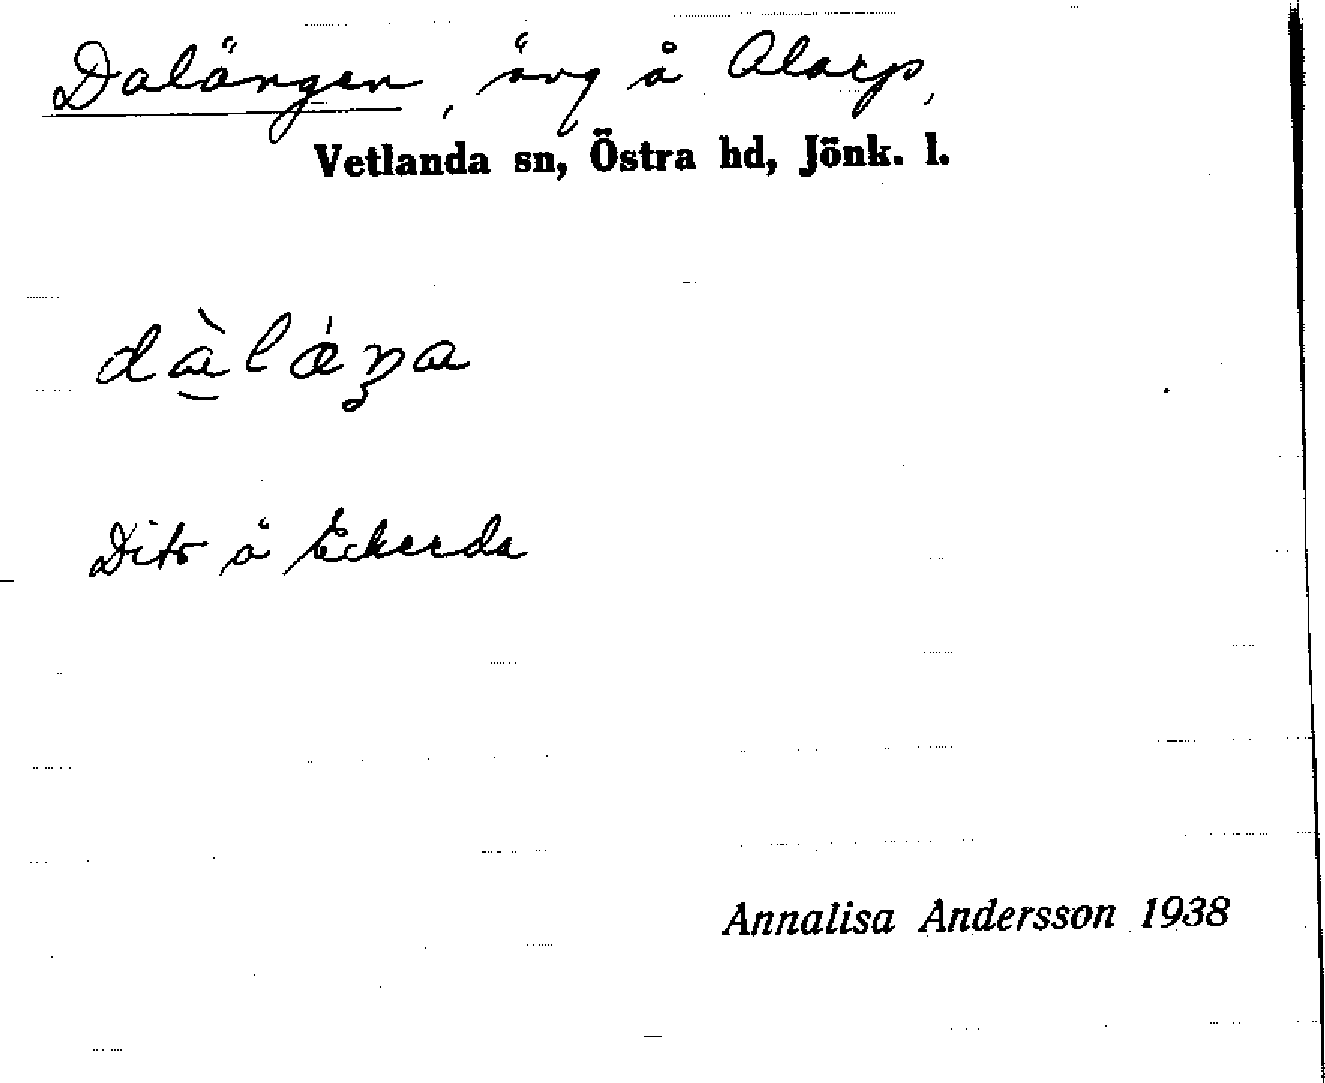 Dalängen, äng å Alarp,
Vetlanda sn, Östra hd, Jönk. l.
Dito å Eckerda
Annalisa Andersson 1938